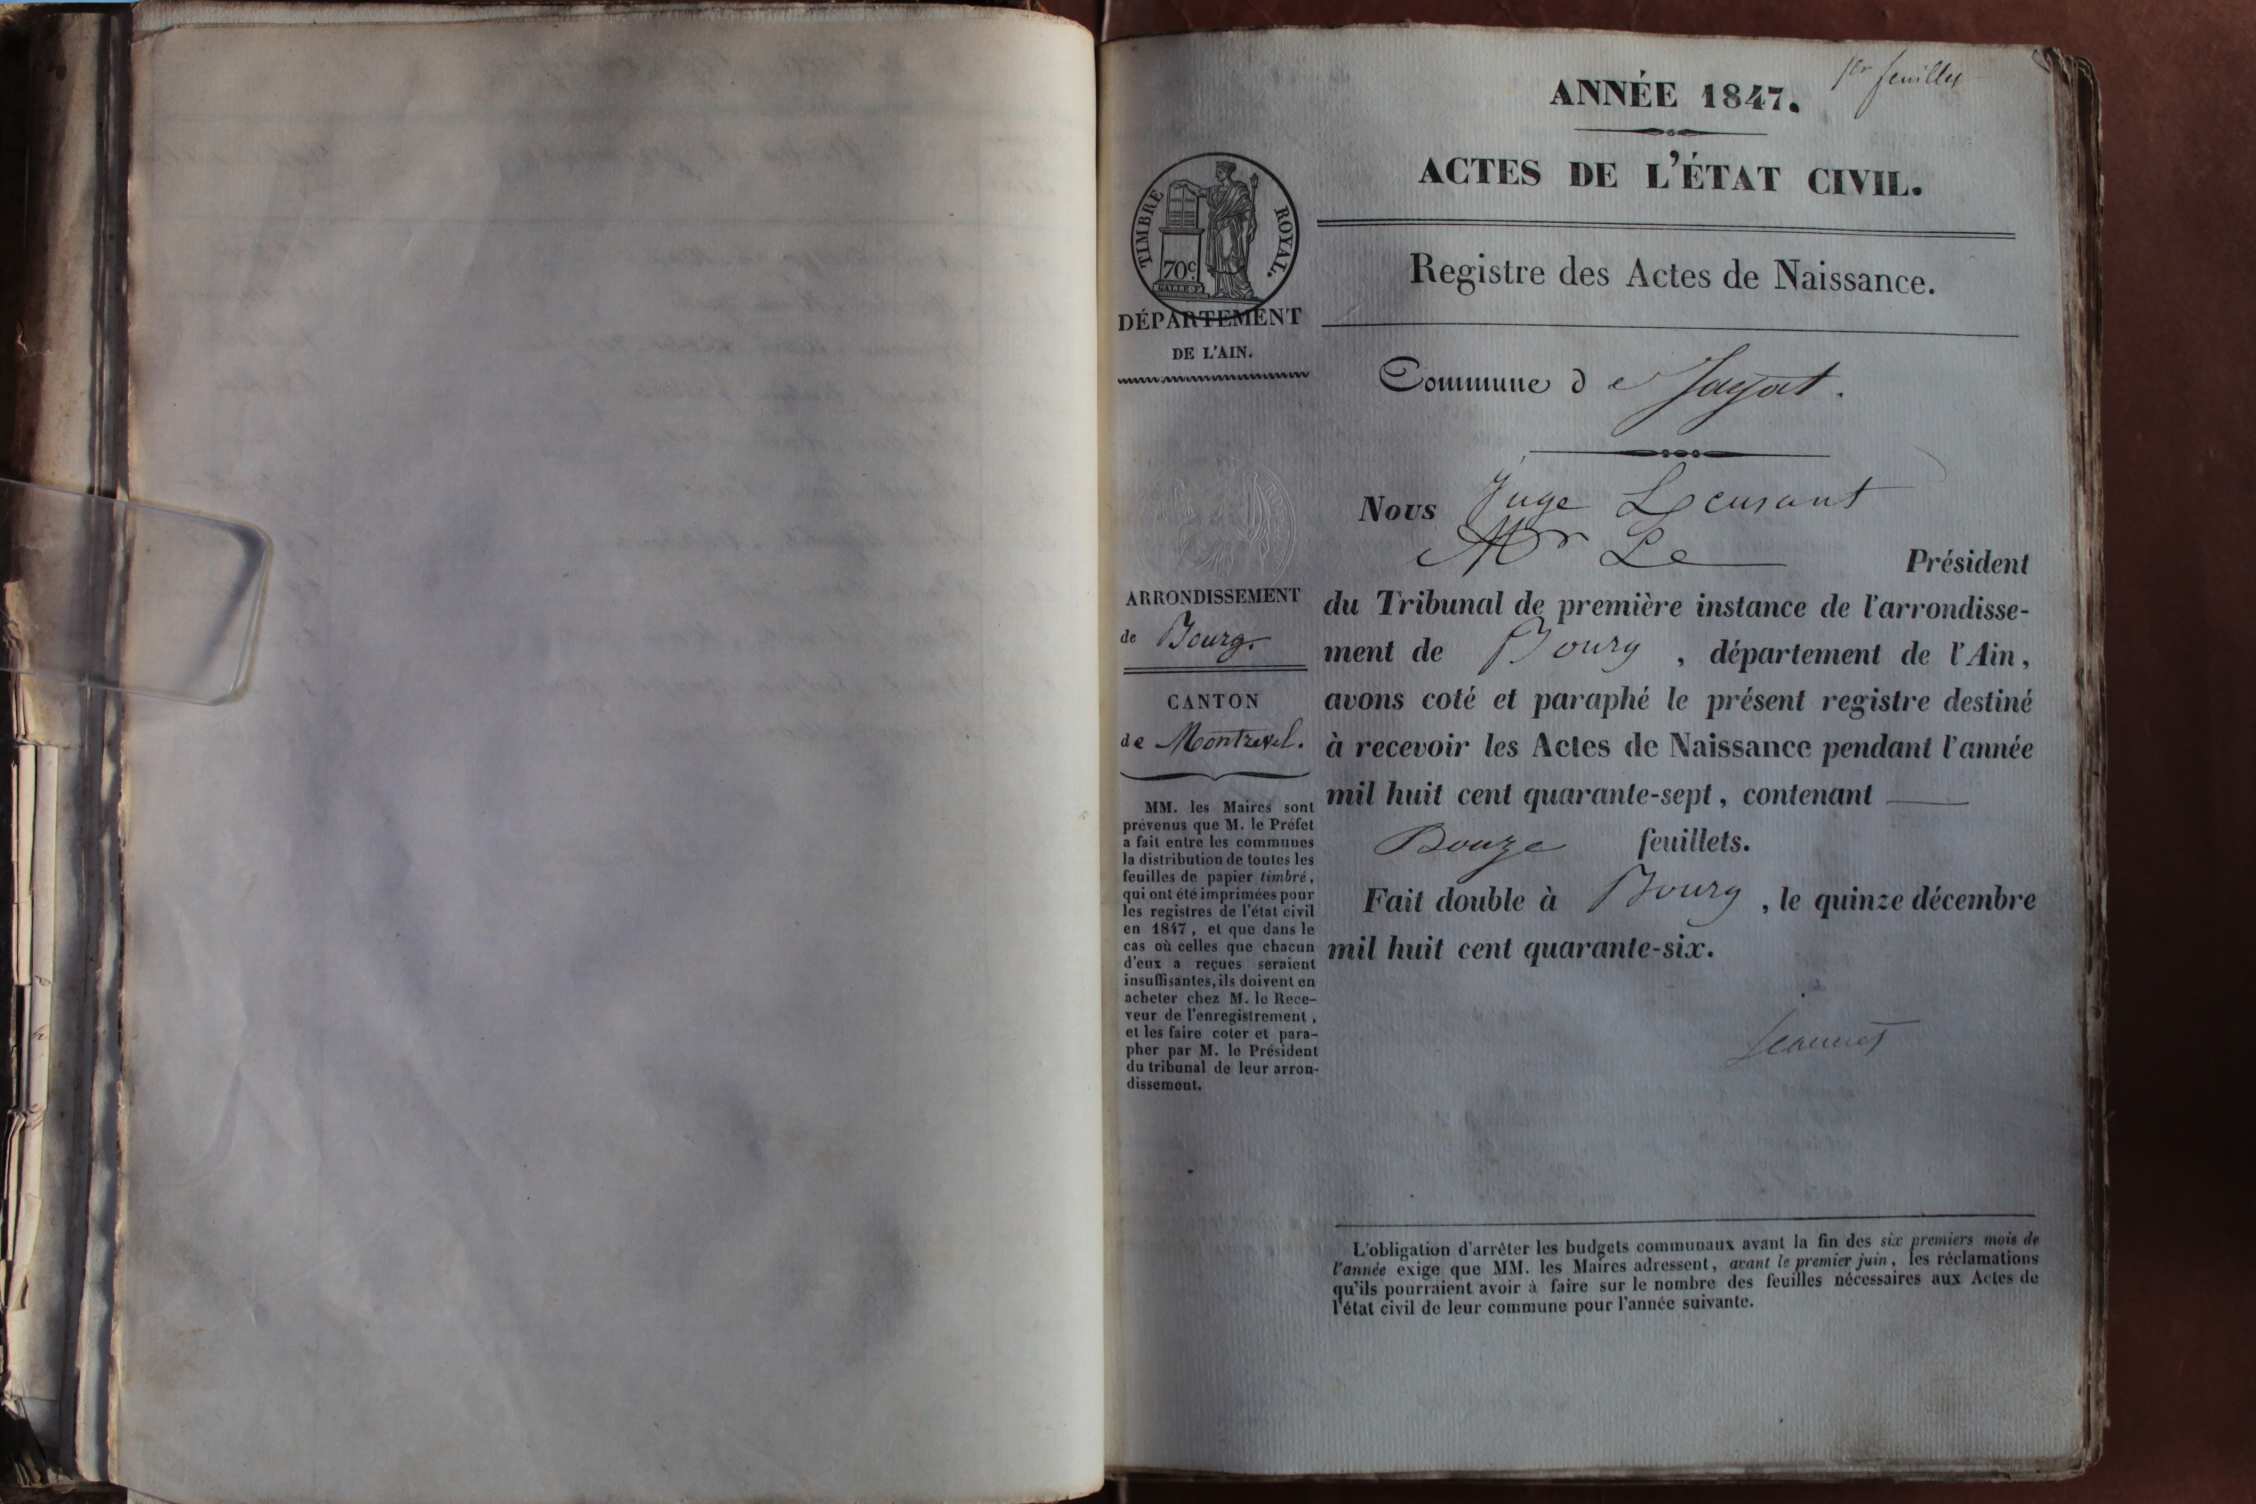 1er feuillet
ANNÉE 1847.
ACTES DE L'ÉTAT CIVIL.
Registre des Actes de Naissance.
TIMBRE ROYAL.
70c
DÉPARTEMENT
DE L'AIN.
Commune de Jayat.
Nous Juge
Mr Le Président
ARRONDISSEMENT
de Bourg.
CANTON
de Montrevel.
du Tribunal de première instance de l'arrondisse-
ment de Bourg, département de l'Ain,
avons coté et paraphé le présent registre destiné
à recevoir les Actes de Naissance pendant l'année
mil huit cent quarante-sept, contenant
Douze feuillets.
Fait double à Bourg, le quinze décembre
mil huit cent quarante-six.
Jeannet
MM. les Maires sont
prévenus que M. le Préfet
a fait entre les communes
la distribution de toutes les
feuilles de papier timbré,
qui ont été imprimées pour
les registres de l'état civil
en 1847, et que dans le
cas où celles que chacun
d'eux a reçues seraient
insuffisantes, ils doivent en
acheter chez M. le Rece-
veur de l'enregistrement,
et les faire coter et para-
pher par M. le Président
du tribunal de leur arron-
dissement.
L'obligation d'arrêter les budgets communaux avant la fin des six premiers mois de
l'année exige que MM. les Maires adressent, avant le premier juin, les réclamations
qu'ils pourraient avoir à faire sur le nombre des feuilles nécessaires aux Actes de
l'état civil de leur commune pour l'année suivante.